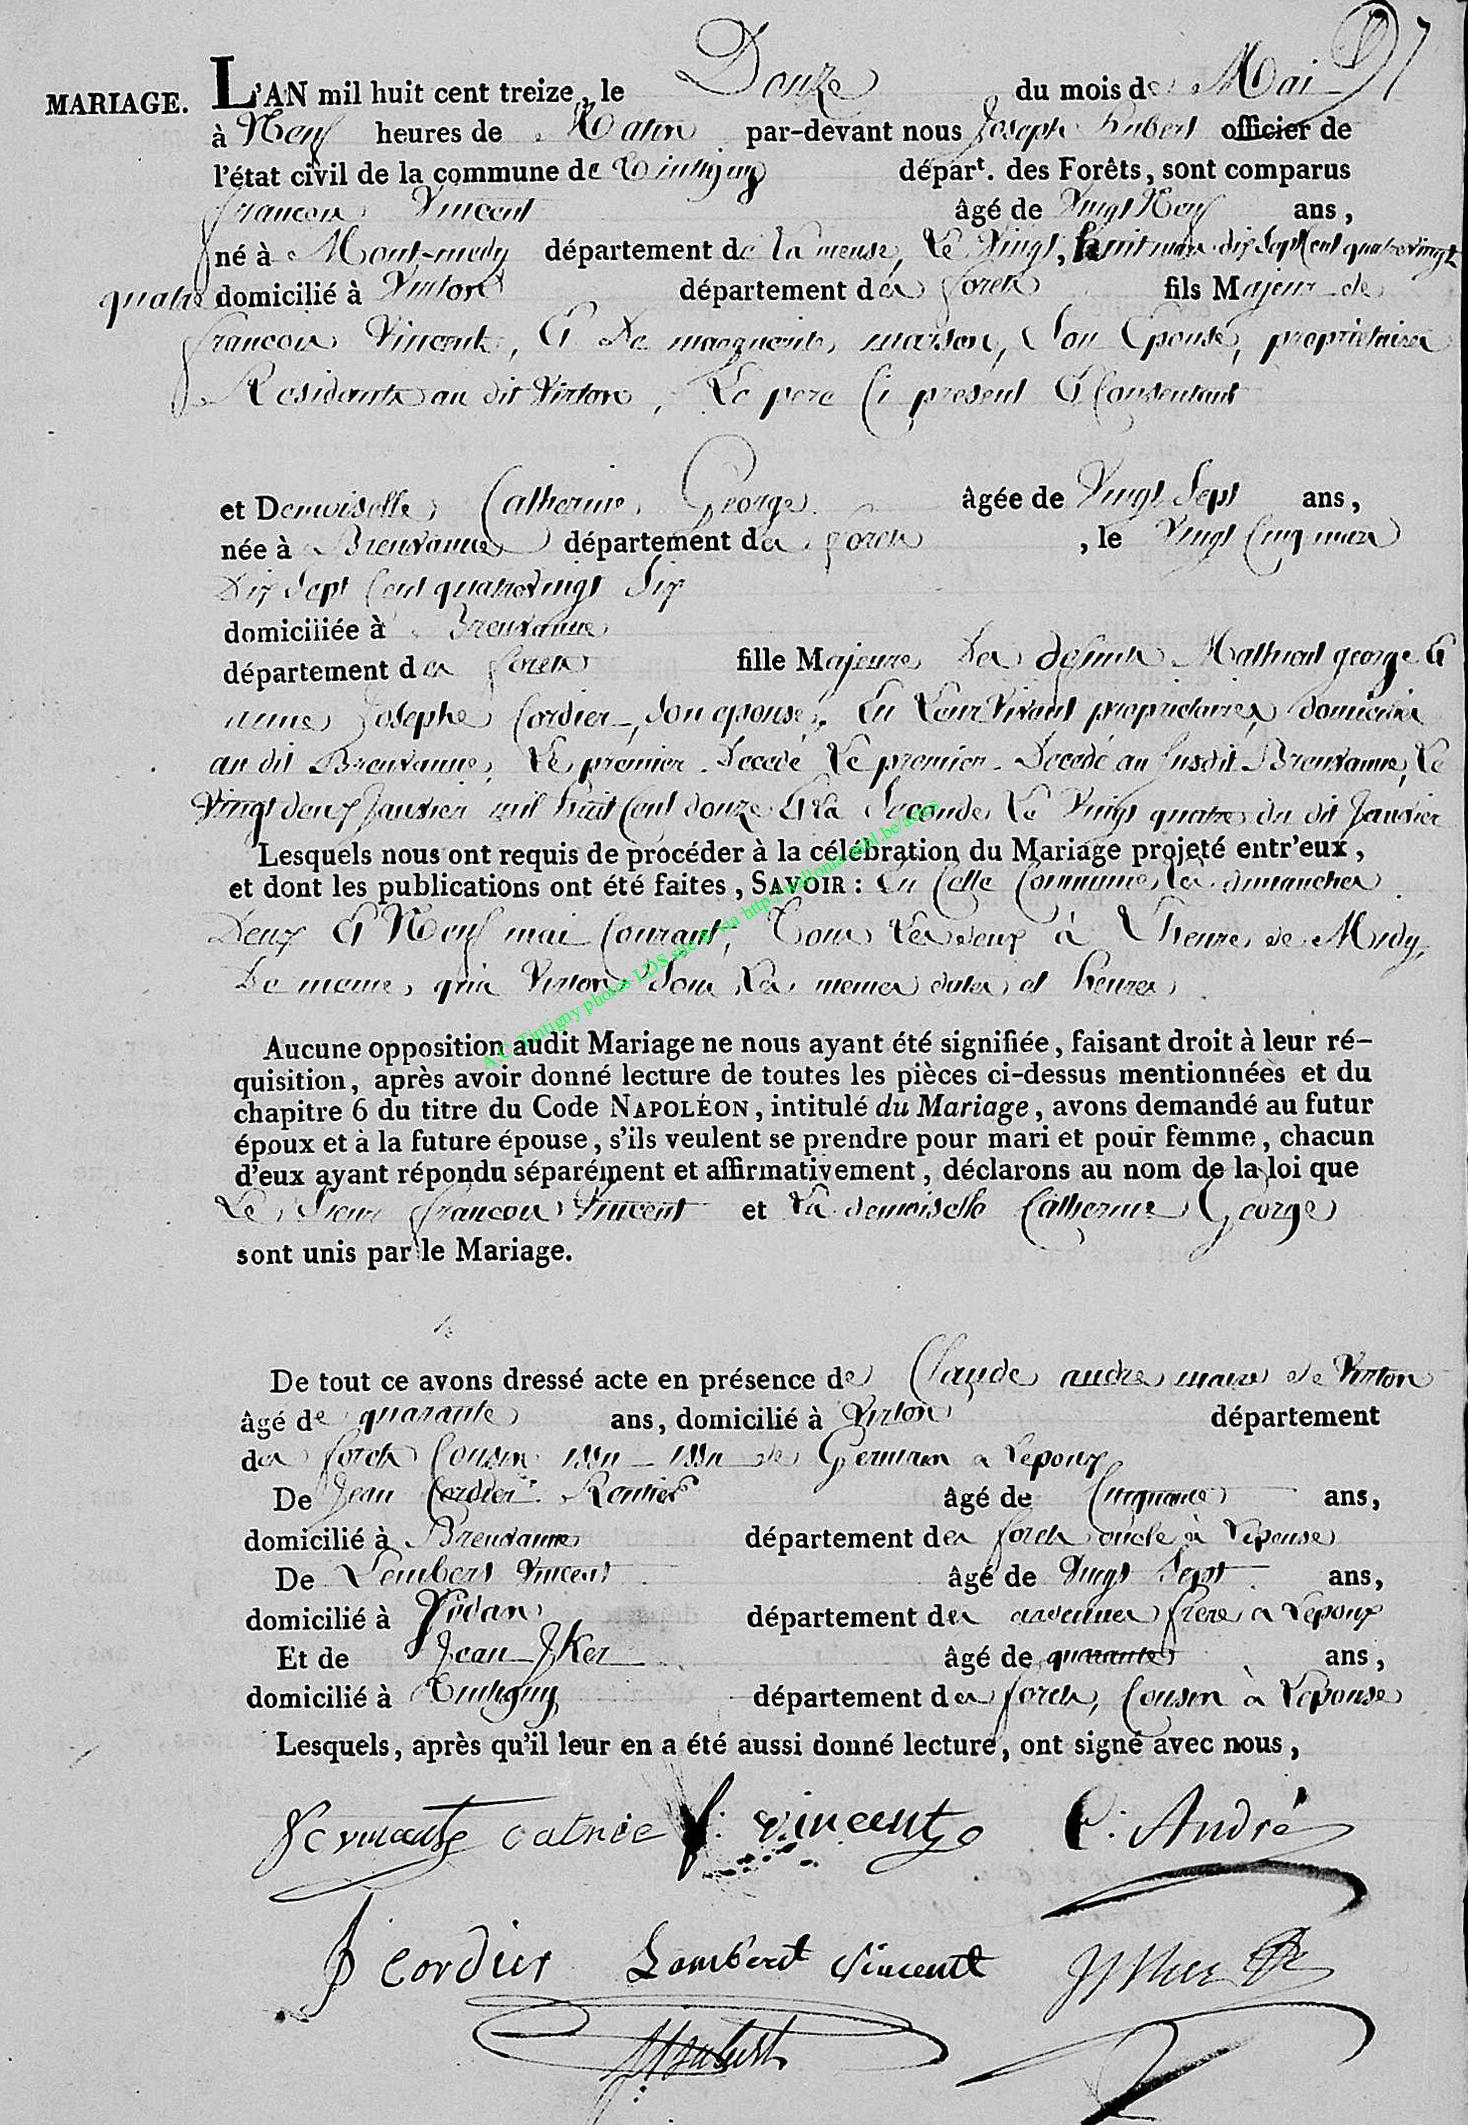 MARIAGE. L'AN mil huit cent treize, le Douze du mois de Mai
à Neuf heures de Matin par-devant nous Joseph hubert officier de
l'état civil de la commune de Tintigny départ. des Forêts, sont comparus
francois Vincent âgé de Vingt Neuf ans,
né à Mont-medy département de la meuse, Le Vingt, huit mars dix Sept Cent quatrevingt
quatre domicilié à Virton département des forets fils Majeur de
francois Vincent, Et De marguerite marson, Son Epouse, proprietaires
Residants au dit Virton, Le pere Ci present Et Consentant
et Demoiselle Catherine George âgée de Vingt Sept ans,
née à Breuvanne département des forets, le Vingt Cinq mars
Dix Sept Cent quatrevingt Six
domiciliée à Breuvanne
département des forets fille Majeure Des defunts Mathieu george Et
anne Josephe Cordier, Son epouse, En Leur Vivant proprietaires, domiciliés
au dit Breuvanne, Le premier Decedé Le premier Decedé au Susdit Breuvanne, Le
Vingt deux Janvier mil huit Cent douze Et La Seconde Le Vingt quatre du dit Janvier
Lesquels nous ont requis de procéder à la célébration du Mariage projeté entr'eux,
et dont les publications ont été faites, SAVOIR : En Cette Commune, Les dimanches
Deux Et Neuf mai Courant, Tous Les deux à L'heure de Midy,
De meme, qu'a Virton Sous Les memes dates et heures
A.C. Tintigny photos LDS site & via http://wallonia-asbl.be/actes
Aucune opposition audit Mariage ne nous ayant été signifiée, faisant droit à leur ré-
quisition, après avoir donné lecture de toutes les pièces ci-dessus mentionnées et du
chapitre 6 du titre du Code NAPOLÉON, intitulé du Mariage, avons demandé au futur
époux et à la future épouse, s'ils veulent se prendre pour mari et pour femme, chacun
d'eux ayant répondu séparément et affirmativement, déclarons au nom de la loi que
Le Sieur francois Vincent et La demoiselle Catherine George
sont unis par le Mariage.
De tout ce avons dressé acte en présence de Claude andre maire de Virton
âgé de quarante ans, domicilié à Virton département
des forets Cousin issu issu de Germain a L'epoux
De Jean Cordier Rentier âgé de Cinquante ans,
domicilié à Breuvanne département des forets oncle à L'epouse
De Lembert Vincent âgé de Vingt Sept ans,
domicilié à département des ardennes frere a L'epoux
Et de Jean âgé de quarante ans,
domicilié à Tintigny département des forets, Cousin à L'epouse
Lesquels, après qu'il leur en a été aussi donné lecture, ont signé avec nous,
f. vincent C. André
J cordier Lambert Vincent
J Hubert